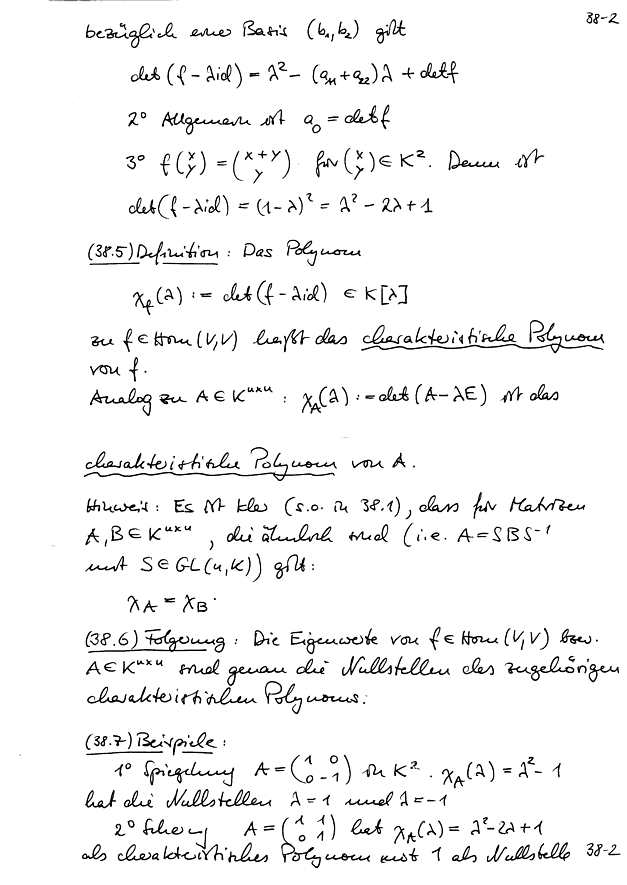 38-2
bezüglich einer Basis (b₁,b₂) gilt
det(f - λid) = λ² - (a₁₁+a₂₂)λ + detf
2° Allgemein ist a₀ = detf
3° f(x y) = (x+y y) für (x y) ∈ K². Dann ist
det(f-λid) = (1-λ)² = λ² - 2λ + 1
(38.5) Definition: Das Polynom
χ_f(λ) := det(f - λid) ∈ K[λ]
zu f ∈ Hom(V,V) heißt das charakteristische Polynom
von f.
Analog zu A ∈ Kⁿˣⁿ: χ_A(λ) := det(A-λE) ist das
charakteristische Polynom von A.
Hinweis: Es ist klar (s.o. in 38.1), dass für Matrizen
A, B ∈ Kⁿˣⁿ, die ähnlich sind (i.e. A = SBS⁻¹
mit S ∈ GL(n,K)) gilt:
χ_A = χ_B.
(38.6) Folgerung: Die Eigenwerte von f ∈ Hom(V,V) bzw.
A ∈ Kⁿˣⁿ sind genau die Nullstellen des zugehörigen
charakteristischen Polynoms.
(38.7) Beispiele:
1° Spiegelung A = (1 0 0 -1) in K². χ_A(λ) = λ² - 1
hat die Nullstellen λ=1 und λ=-1
2° Scherung A = (1 1 0 1) hat χ_A(λ) = λ²-2λ+1
als charakteristisches Polynom mit 1 als Nullstelle 38-2